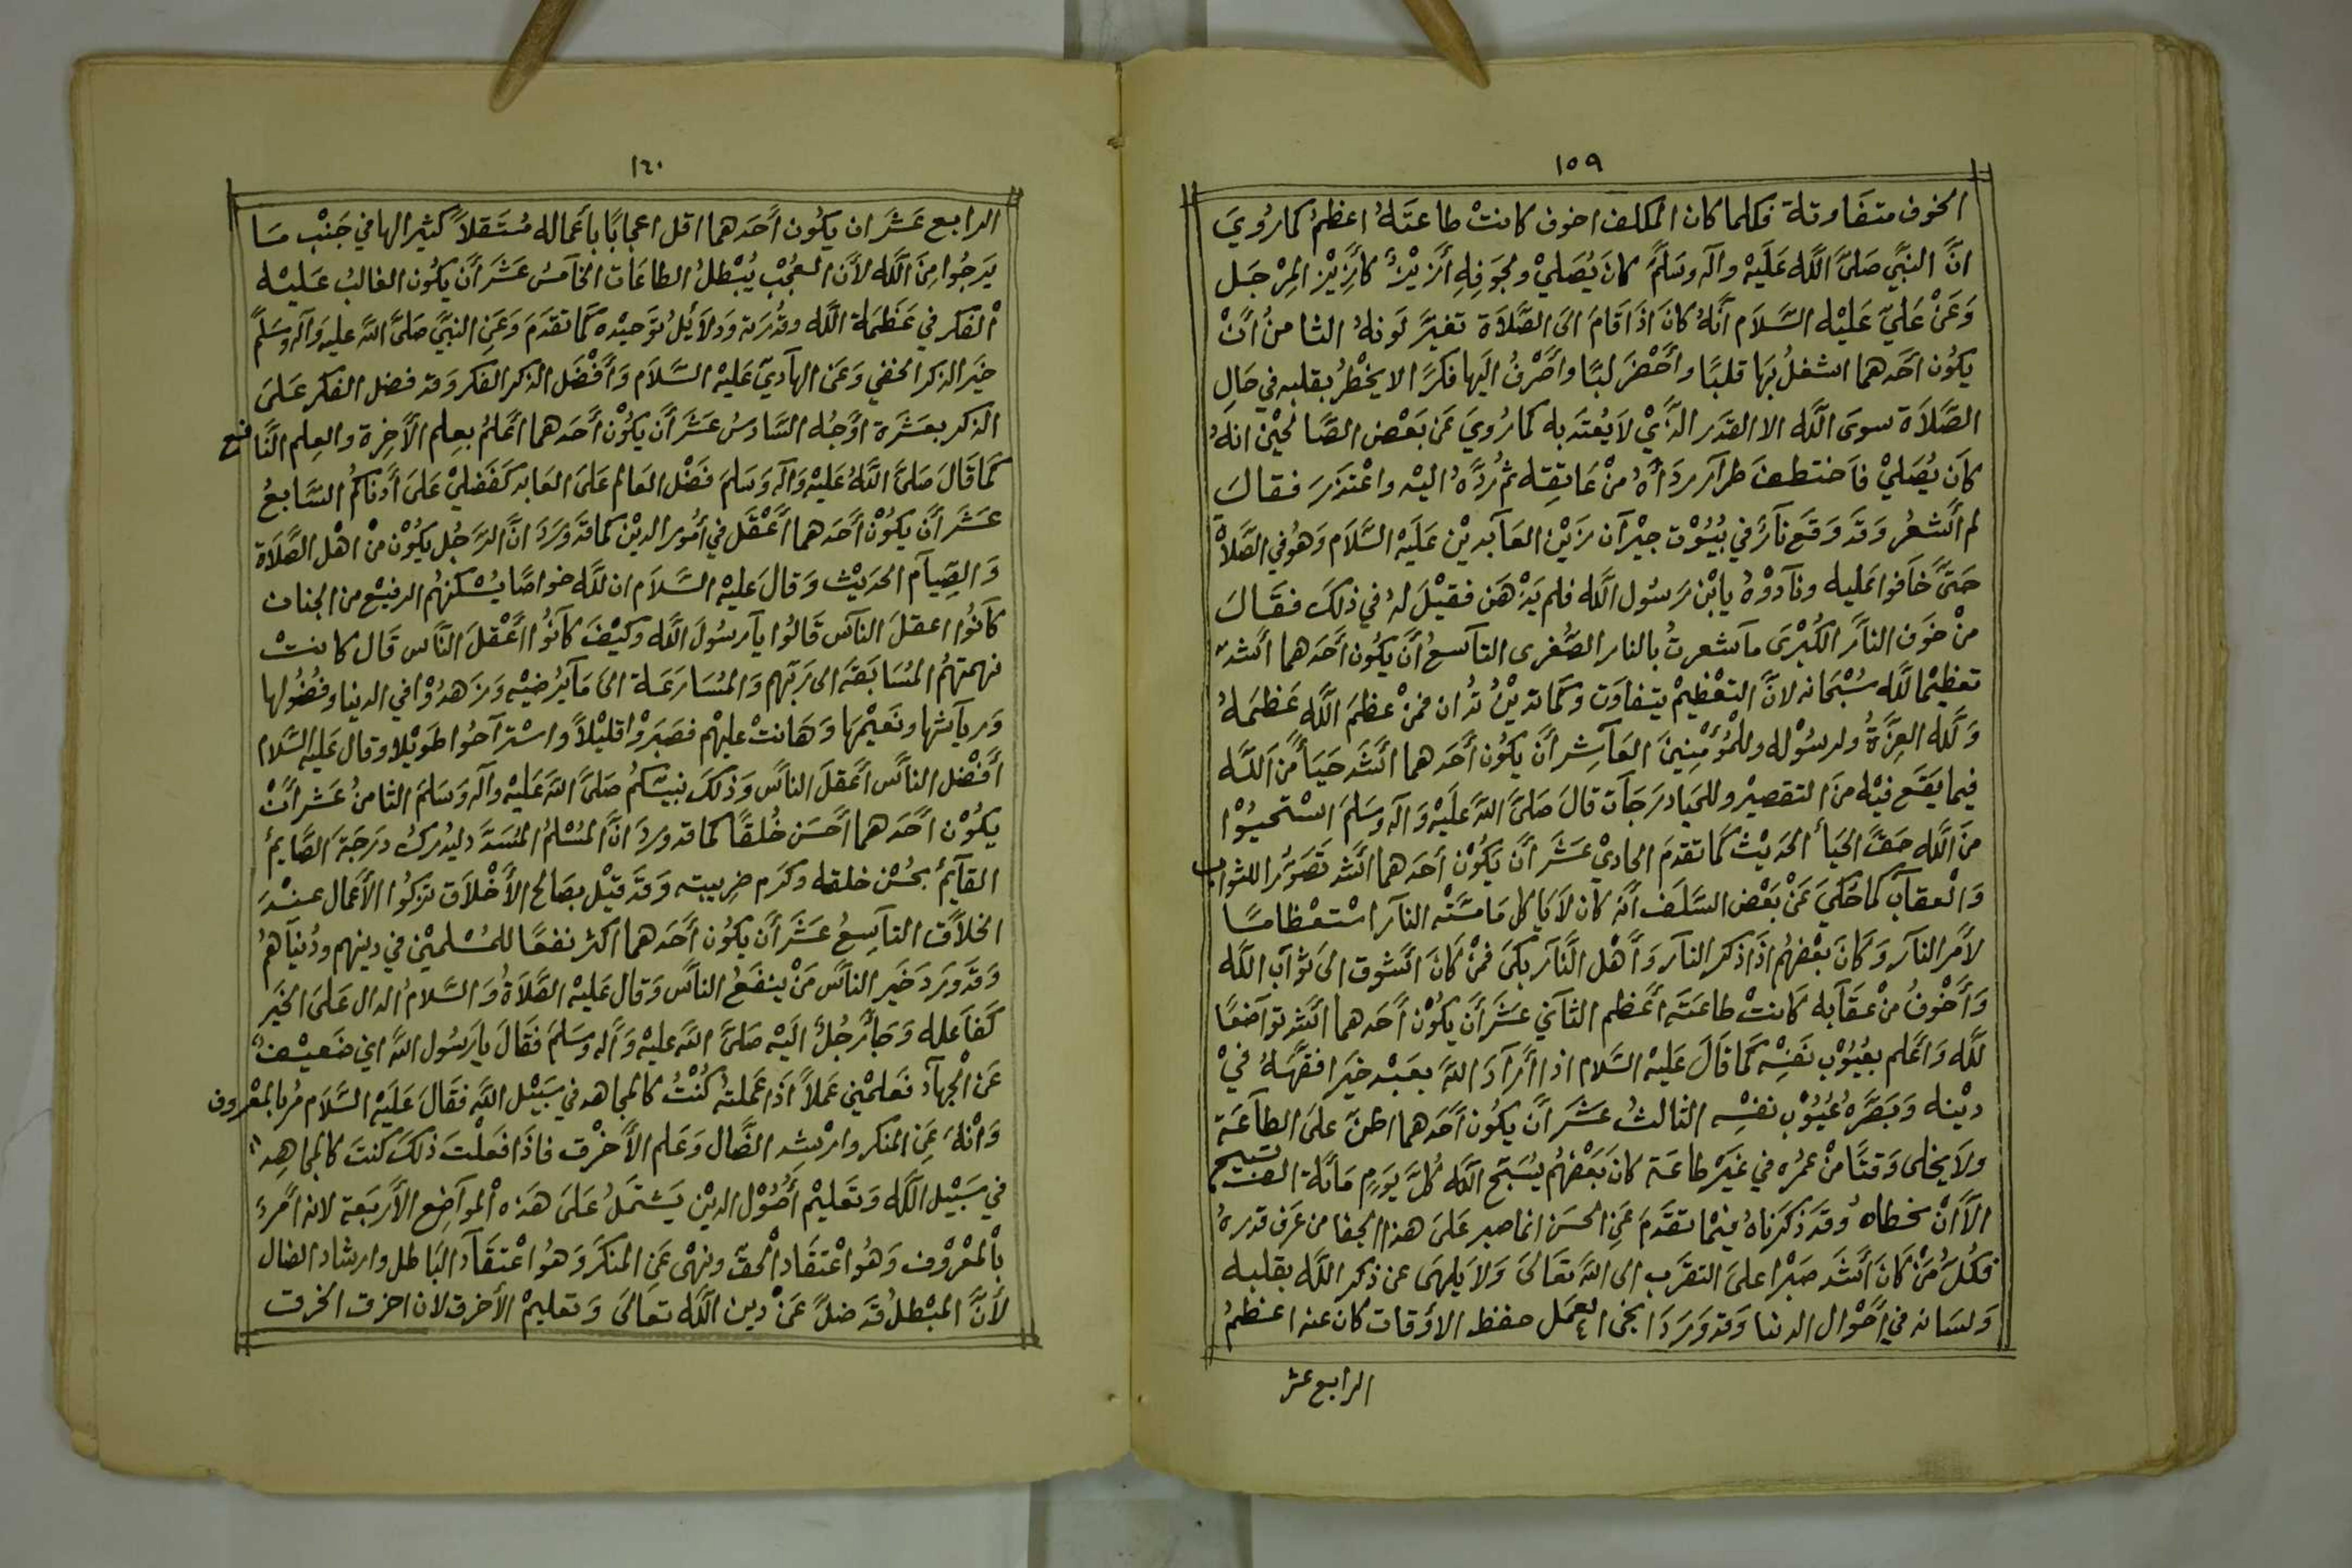 ١٥٩
الخوف متفاوتة فكلما كان المكلف اخوف كانت طاعته اعظم كما روي
انّ النبيّ صلّى اللّه عليه وآله وسلّم كان يُصلي ولجوفه أزيز كأزيز المرجل
وعن عليّ عليه السّلام أنّه كان اذا قام الى الصّلاة تغيّر لونه الثامن أنْ
يكون احدهما اشغل بها قلبًا وأحضر لبًا وأصرف اليها فكرًا لا يخطر بقلبه في حال
الصّلاة سوى اللّه الا القدر الّذي لا يعتد به كما روي عن بعض الصّالحين انه
كان يُصلي فاختطف طرار رداه من عاتقه ثم رُدّه اليه واعتذر فقال
لم أشعر وقد وقع نار في بيوت جيران زين العابدين عليه السّلام وهو في الصّلاة
حتّى خافوا عليه ونادوه يابن رسول اللّه فلم يذهن فقيل له في ذلك فقال
من خوف النار الكبرى ما شعرت بالنار الصّغرى التاسع أن يكون أحدهما أشدّ
تعظيما للّه سبحانه لانّ التعظيم يتفاوت وكما تدين تُدان فمن عظم اللّه عظمه
وللّه العزّة ولرسوله وللمؤمنين العاشر أن يكون أحدهما أشد حيأ من اللّه
فيما يقع فيه من التقصير وللحيا درجات قال صلّى اللّه عليه وآله وسلم استحيوا
من اللّه حقّ الحيأ الحديث كما تقدم الحادي عشر أن يكون أحدهما أشد تصورًا للثواب
والعقاب كما حكي عن بعض السلف أنّه كان لا ياكل ما مسّته النار استعظاما
لأمر النار وكان بعضهم اذا ذكر النار وأهل النّار بكى فمن كان اشوق الى ثواب اللّه
وأخوف من عقابه كانت طاعته أعظم الثاني عشر أن يكون أحدهما اشد تواضعًا
للّه وأعلم بعيوب نفسه كما قال عليه السّلام اذا أراد اللّه بعبد خيرا فقّهه في
دينه وبصّره عيوب نفسه الثالث عشر أن يكون أحدهما اظنّ على الطاعة
ولا يخلي وقتًا من عمره في غير طاعة كان بعضهم يسبح اللّه كلّ يوم مائة الف تسبيحة
الأ أن يخطاه وقد ذكرناه فيما تقدم عن الحسن انما صبر على هذا الجفا من عرف قدره
فكلّ من كان أشد صبرا على التقرب الى اللّه تعالى ولا يلهى عن ذكر اللّه بقلبه
ولسانه في أحوال الدنيا وقد ورد انجى العمل حفظ الأوقات كان عنه اعظم
الرابع عشر
١٦٠
الرابع عشر ان يكون أحدهما اقل اعجابًا بأعماله مُستقلاً كثيرالها في جنب ما
يرجوا من اللّه لأن العجب يُبطل الطاعات الخامس عشر أن يكون الغالب عليه
الفكر في عظمة اللّه وقدرته ودلائل توحيده كما تقدم وعن النبيّ صلّى اللّه عليه وآله وسلّم
خير الذكر الخفي وعن الهادي عليه السّلام وأفضل الذكر الفكر وقد فضل الفكر على
الذكر بعشرة اوجه السّادس عشر أن يكون أحدهما أعلم بعلم الأخرة والعلم النّافع
كما قال صلّى اللّه عليه وآله وسلم فضل العالم على العابد كفضلي على أدناكم السّابع
عشر أن يكون أحدهما أعقل في أمور الدين كما قد ورد انّ الرّجل يكون من اهل الصّلاة
والصيام الحديث وقال عليه السّلام ان للّه خواصّا يُسكنهم الرفيع من الجنان
كانوا اعقل الناس قالوا يا رسول اللّه وكيف كانوا أعقل النّاس قال كانت
نهمتهم المُسابقة الى ربّهم والمُسارعة الى ما يُرضيه وزهدوا في الدنيا وفضولها
ورياستها ونعيمها وهانت عليهم فصبروا قليلاً واستراحوا طويلا وقال عليه السّلام
أفضل الناس أعقل الناس وذلك نبيكم صلّى اللّه عليه وآله وسلم الثامن عشر أنْ
يكون أحدهما أحسن خُلقًا كما قد ورد انّ المُسلم المُسدّد ليُدرك درجة الصّايم
القائم بحُسن خلقه وكرم ضريبته وقد قيل بصالح الأخلاق تزكوا الأعمال عند
الخلاّق التاسع عشر أن يكون أحدهما اكثر نفعًا للمُسلمين في دينهم ودُنياهُم
وقد ورد خير الناس من ينفع الناس وقال عليه الصّلاة والسّلام الدال على الخير
كفاعله وجأ رجل اليه صلّى اللّه عليه وآله وسلم فقال يا رسول اللّه اني ضعيف
عن الجهاد فعلمني عملاً اذا عملته كُنتُ كالمجاهد في سبيل اللّه فقال عليه السّلام مُر بالمعروف
وانه عن المنكر وارشد الضّال وعلم الأخرق فاذا فعلت ذلك كنت كالمجاهد
في سبيل اللّه وتعليم أصول الدين يشتمل على هذه المواضع الأربعة لانه أمر
بالمعروف وهو اعتقاد الحق ونهى عن المنكر وهو اعتقاد الباطل وارشاد الضال
لأنّ المبطل قد ضلّ عن دين اللّه تعالى وتعليم الأخرق لان اخرق الخرق